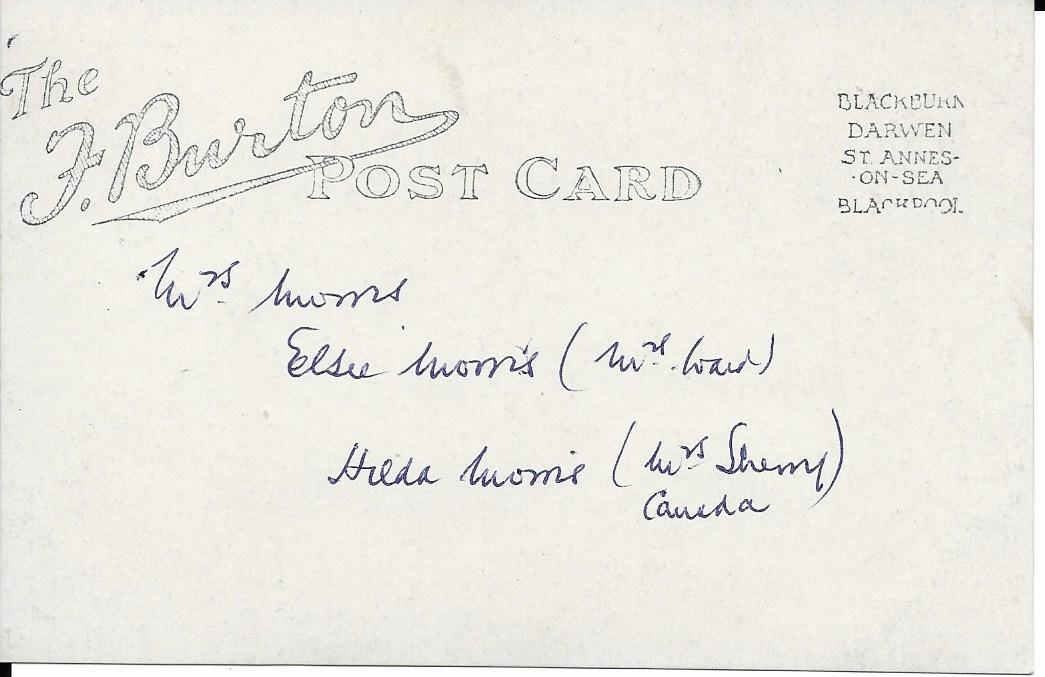 The
F. Burton
POST CARD
BLACKBURN
DARWEN
ST. ANNES-
-ON-SEA
BLACKPOOL
Mrs Morris
Elsie Morris (Mrs. Ward)
Hilda Morris (Mrs Sherry)
Canada